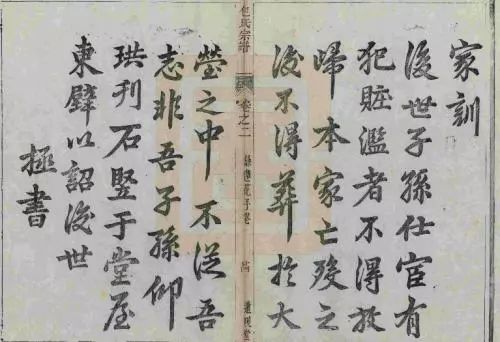 家訓
後世子孫仕宦有
犯賍濫者不得放
歸本家亡殁之
後不得葬於大
包氏宗譜
卷之二
塋之中不從吾
志非吾子孫仰
珙刊石竪于堂屋
東壁以詔後世
極書